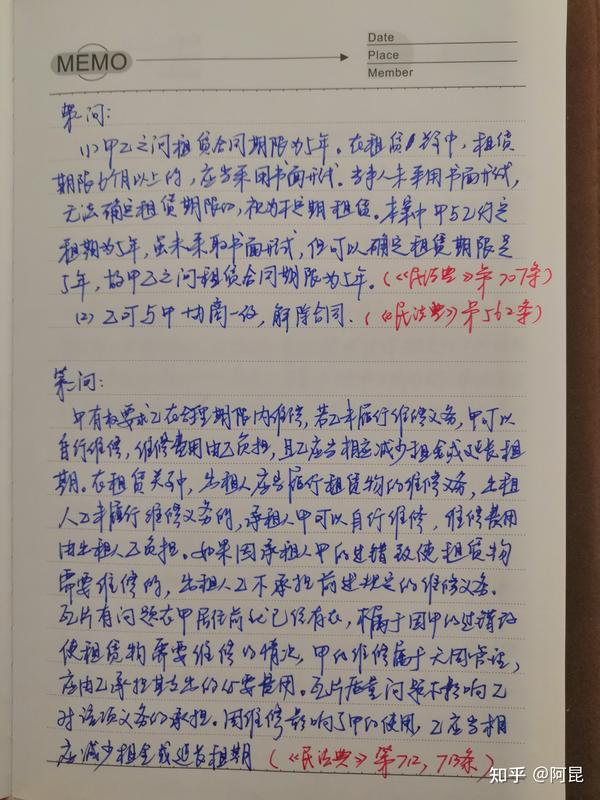 MEMO
Date
Place
Member
第一问：
(1) 甲乙之间租赁合同期限为5年。在租赁合同中，租赁
期限6个月以上的，应当采用书面形式。当事人未采用书面形式，
无法确定租赁期限的，视为不定期租赁。本案中甲与乙约定
租期为5年，虽未采取书面形式，但可以确定租赁期限是
5年，故甲乙之间租赁合同期限为5年。(《民法典》第707条)
(2) 乙可与甲协商一致，解除合同. (《民法典》第562条)
第二问：
甲有权要求乙在合理期限内维修，若乙未履行维修义务，甲可以
自行维修，维修费用由乙负担，且乙应当相应减少租金或延长租
期。在租赁关系中，出租人应当履行租赁物的维修义务，出租
人乙未履行维修义务的，承租人甲可以自行维修，维修费用
由出租人乙负担。如果因承租人甲的过错致使租赁物
需要维修的，出租人乙不承担前述规定的维修义务。
瓦片有问题在甲居住前就已经存在，不属于因甲的过错致
使租赁物需要维修的情况，甲的维修属于无因管理，
应由乙承担其支出的必要费用。瓦片质量问题不影响乙
对该项义务的承担。因维修影响了甲的使用，乙应当相
应减少租金或延长租期 (《民法典》第712, 713条)
知乎 @阿昆